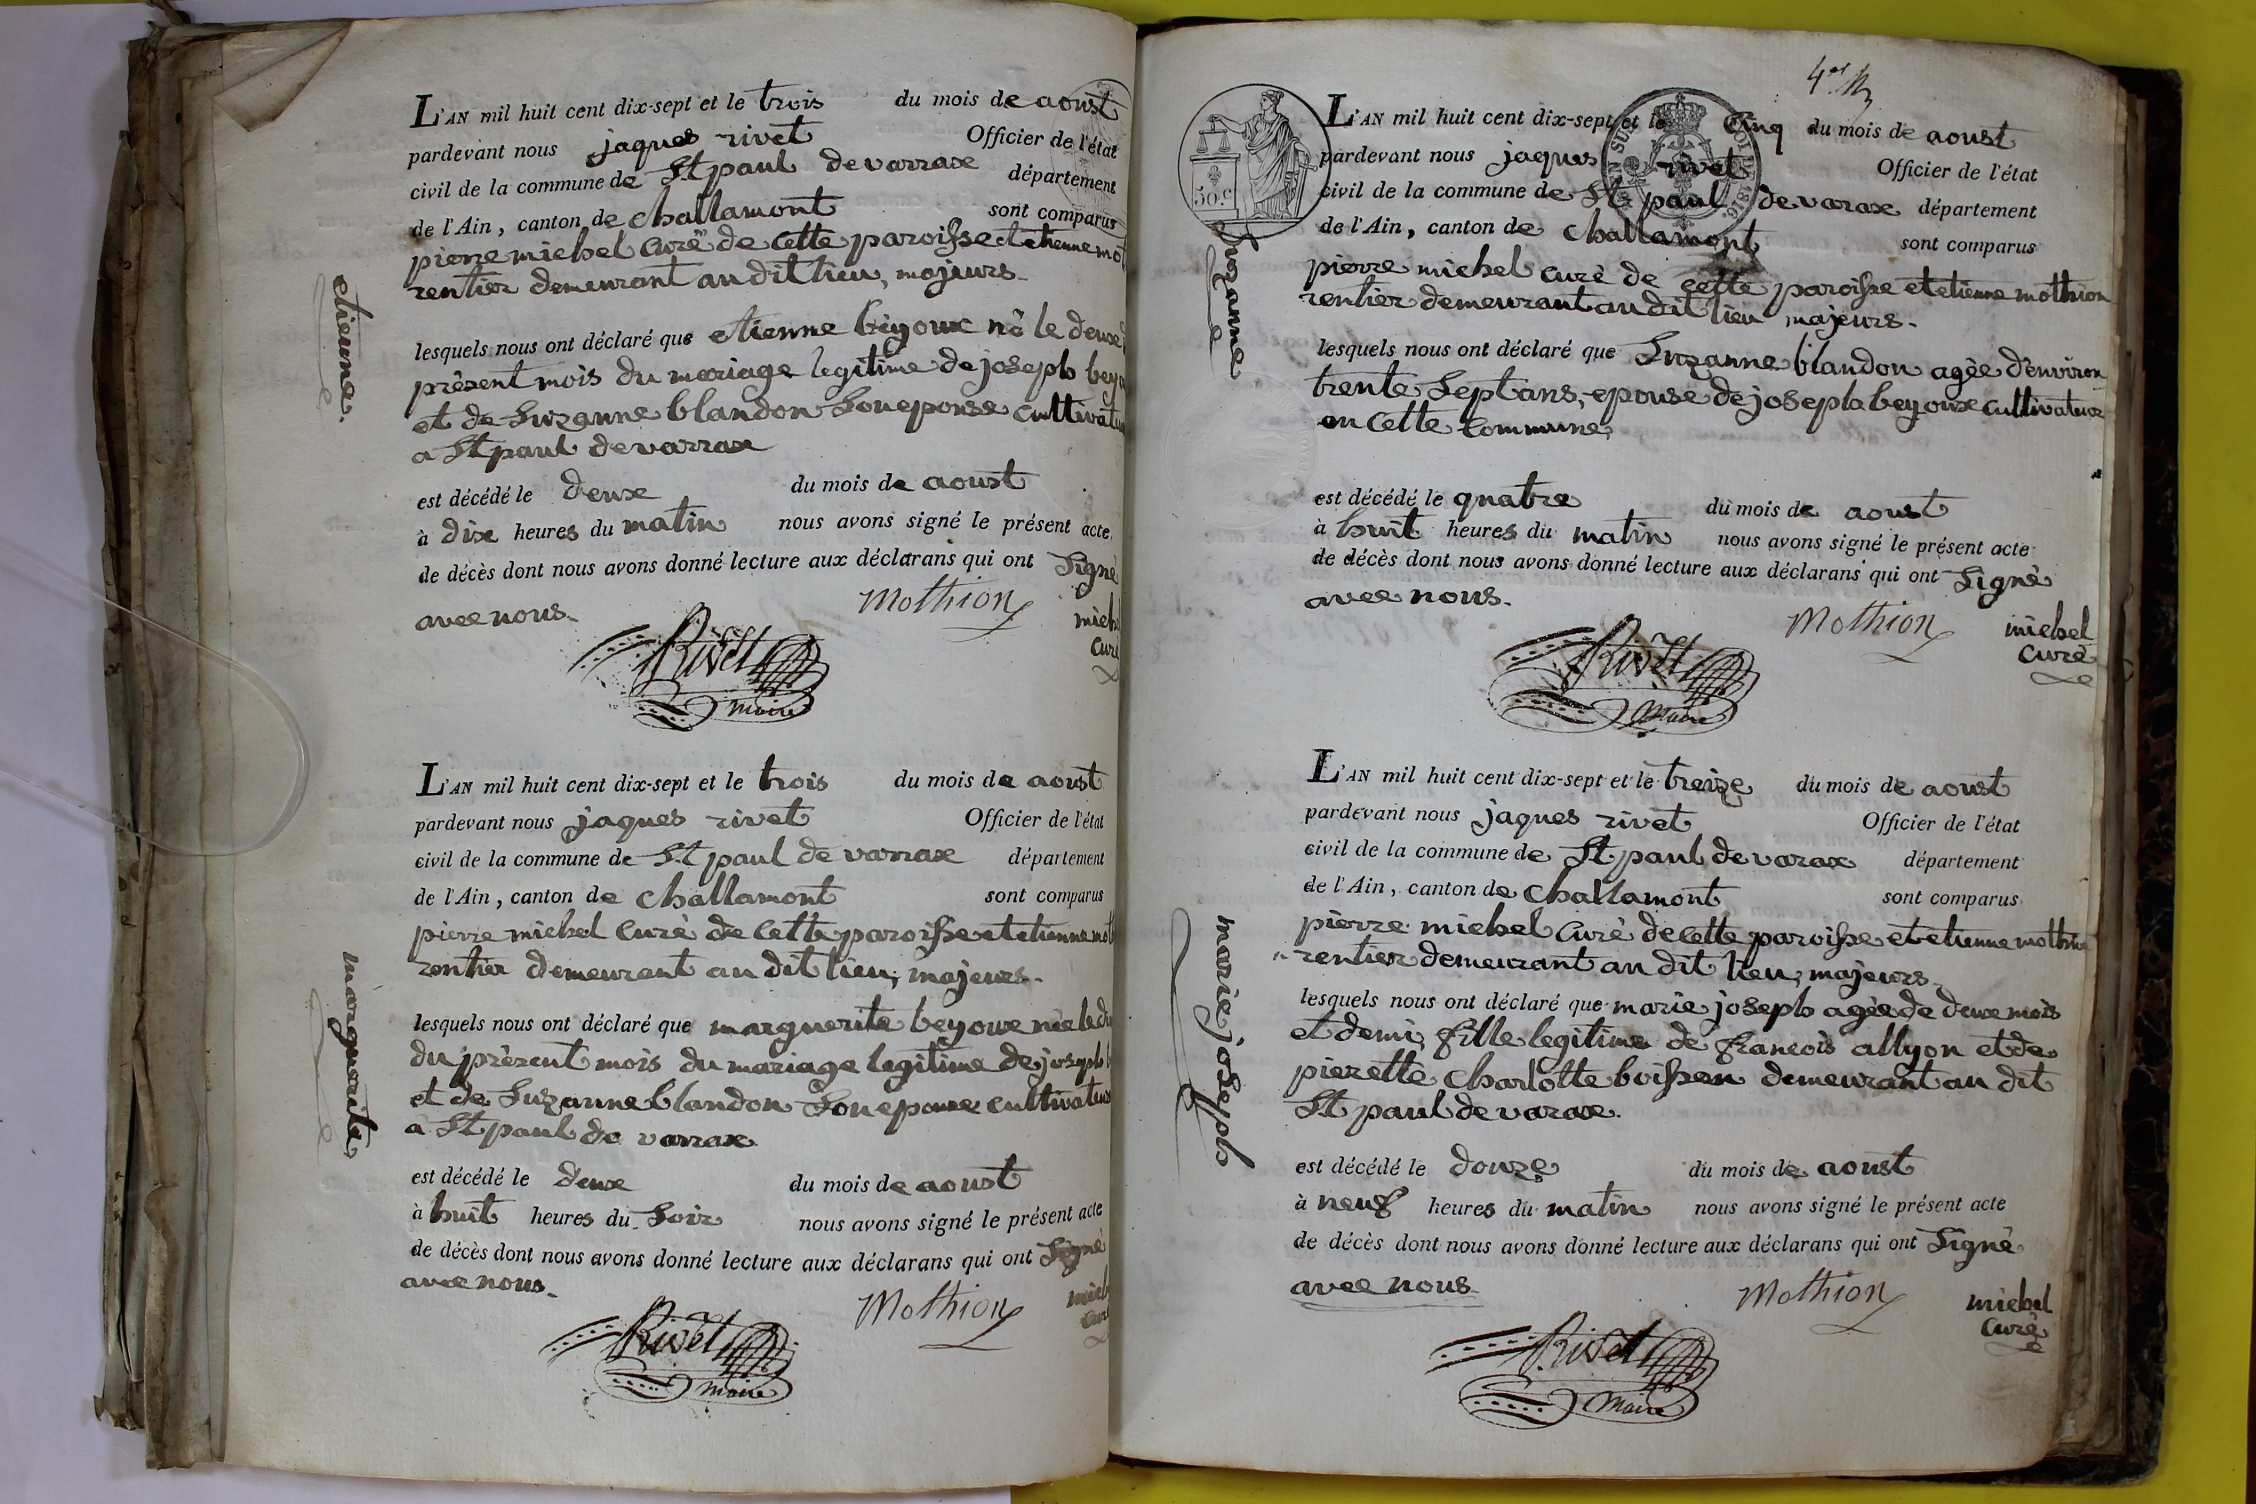 etienne.
L'AN mil huit cent dix-sept et le trois du mois de aoust
pardevant nous jaques rivet Officier de l'état
civil de la commune de St paul de varrax département
de l'Ain, canton de challamont sont comparus
pierre michel curé de cette paroisse et etienne mot
rentier demeurant au dit lieu, majeurs.
lesquels nous ont déclaré que etienne beyoux né le deux
présent mois du mariage legitime de joseph beyo
et de Suzanne blandon Son epouse cultivateu
a St paul de varrax
est décédé le deux du mois de aoust
à dix heures du matin nous avons signé le présent acte
de décès dont nous avons donné lecture aux déclarans qui ont Signé
avec nous.
Mothion
miche
curé
Rivet
maire
marguerite
L'AN mil huit cent dix-sept et le trois du mois de aoust
pardevant nous jaques rivet Officier de l'état
civil de la commune de St paul de varrax département
de l'Ain, canton de challamont sont comparus
pierre michel curé de cette paroisse et etienne mot
rentier demeurant au dit lieu, majeurs.
lesquels nous ont déclaré que marguerite beyoux née le
du prèsent mois du mariage legitime de joseph
et de Suzanne blandon Son epouse cultivateur
a St paul de varrax
est décédé le deux du mois de aoust
à huit heures du Soir nous avons signé le présent acte
de décès dont nous avons donné lecture aux déclarans qui ont Signé
avec nous.
Mothion
Rivet
maire
4e
50 c
Suzanne
L'AN mil huit cent dix-sept et le Cinq du mois de aoust
pardevant nous jaques rivet Officier de l'état
civil de la commune de St paul de varax département
de l'Ain, canton de challamont sont comparus
pierre michel curé de cette paroisse et etienne mothion
rentier demeurant au dit lieu majeurs.
lesquels nous ont déclaré que Suzanne blandon agée d'environ
trente Sept ans, epouse de joseph beyoux cultivateur
en cette commune,
est décédé le quatre du mois de aoust
à huit heures du matin nous avons signé le présent acte
de décès dont nous avons donné lecture aux déclarans qui ont Signé
avec nous.
Mothion
michel
curé
Rivet
Maire
marie joseph
L'AN mil huit cent dix-sept et le treize du mois de aoust
pardevant nous jaques rivet Officier de l'état
civil de la commune de St paul de varax département
de l'Ain, canton de challamont sont comparus
pierre michel curé de cette paroisse et etienne mothion
rentier demeurant au dit lieu, majeurs.
lesquels nous ont déclaré que marie joseph agée de deux mois
et demi, fille legitime de françois allyon et de
pierette charlotte boissen demeurant au dit
St paul de varax.
est décédé le douze du mois de aoust
à neuf heures du matin nous avons signé le présent acte
de décès dont nous avons donné lecture aux déclarans qui ont Signé
avec nous
Mothion
michel
curé
Rivet
Maire